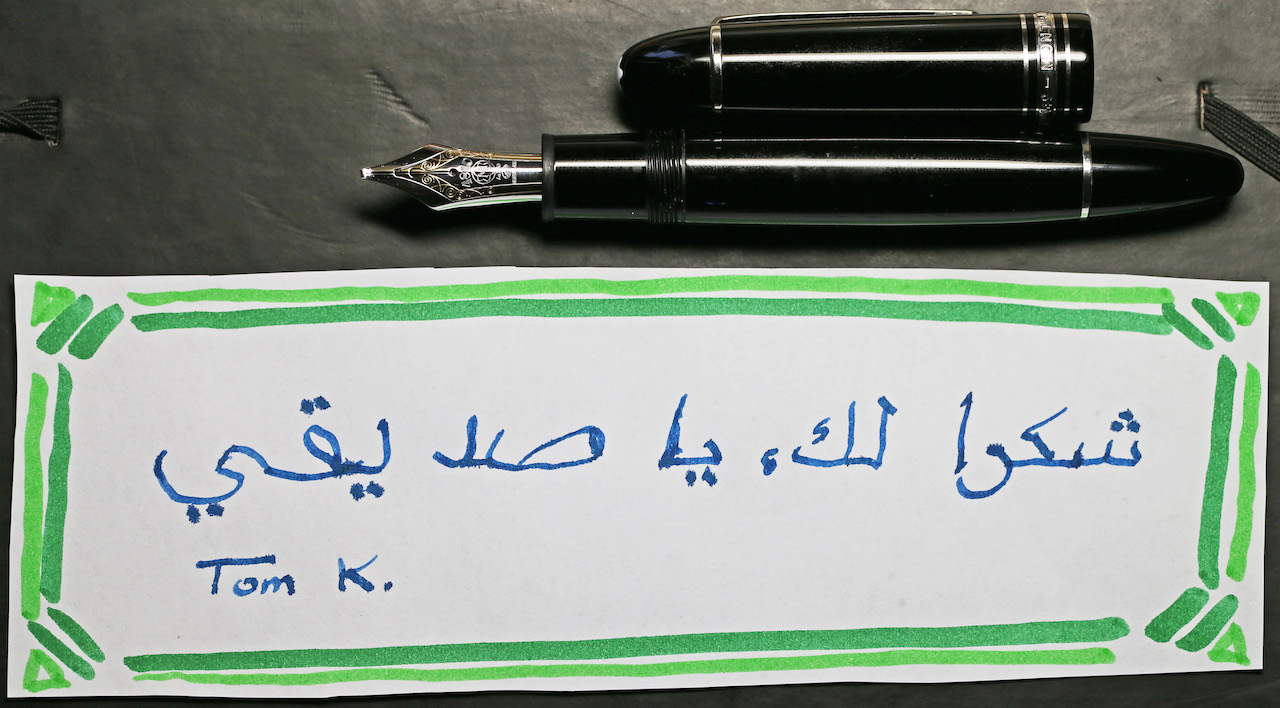 شكرا لك، يا صديقي
Tom K.